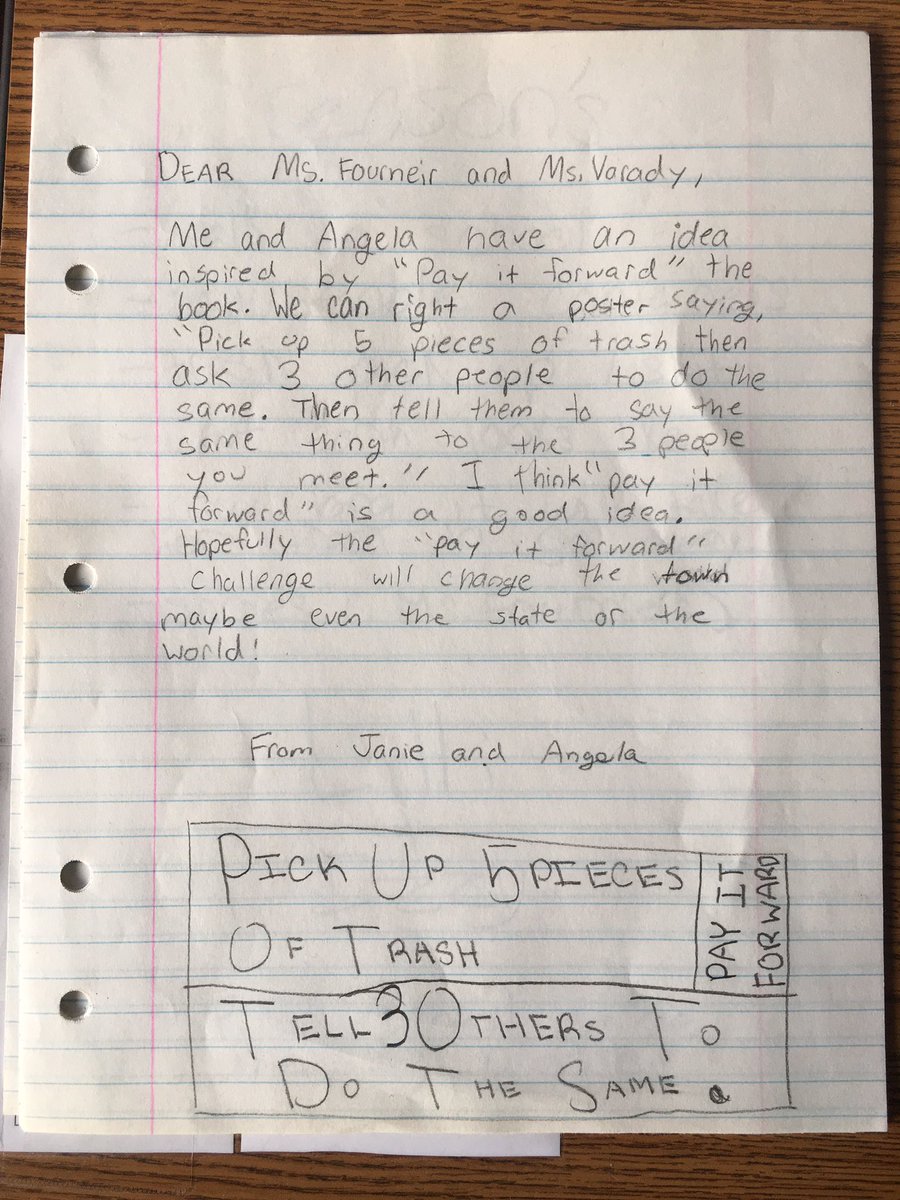 DEAR Ms. Fourneir and Ms. Varady,
Me and Angela have an idea
inspired by "Pay it forward" the
book. We can right a poster saying,
"Pick up 5 pieces of trash then
ask 3 other people to do the
same. Then tell them to say the
same thing to the 3 people
you meet." I think "pay it
forward" is a good idea.
Hopefully the "pay it forward"
challenge will change the town
maybe even the state or the
world!
From Janie and Angela
PICK UP 5 PIECES
OF TRASH
PAY IT
FORWARD
TELL 3 OTHERS TO
DO THE SAME.